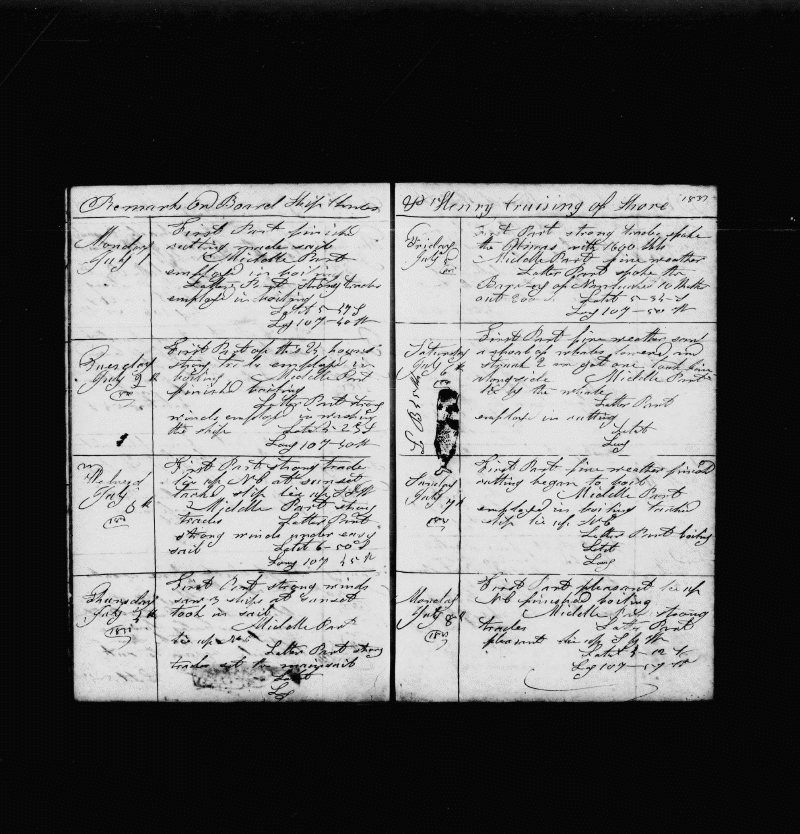 Remarks On Board Ship Charles
Monday
July 1
First Part finished
cutting made sail
Middle Part
employed in boiling
Latter Part strong trades
employed in boiling
Latd 5-47 S
Lg 107-40 W
Tuesday
July 2
First Part of this 24 hours
strong trades employed in
boiling Middle Part
finished boiling
Latter Part strong
winds employed in washing
the ship Latd 5-23 S
Long 107-30 W
Wednesd
July 3
First Part strong trades
lie up NE at sunset
tacked ship lie up SSW
Middle Part strong
trades Latter Part
strong winds under easy
sail Latd 6-50 S
Long 107 45 W
Thursday
July 4
First Part strong winds
saw 3 ships at sunset
took in sail
Middle Part
lie up
Latter Part strong
trades
Latd
Lg
& Henry Cruising of Shore 1837
Friday
July 5
First Part strong trades spoke
the with 1600 bbls
Middle Part fine weather
Latter Part spoke the
of Nantucket
out Latd 5-34 S
Long 107-50 W
Saturday
July 6
First Part fine weather saw
a shoal of whales lowered and
struck 2 and got one took him
alongside Middle Part
lie by the whale
Latter Part
employed in cutting
Latd
Long
Sunday
July 7
First Part fine weather finished
cutting began to boil
Middle Part
employed in boiling tacked
ship lie up NE
Latter Part boiling
Latd
Long
Monday
July 8
First Part pleasant lie up
NE finished boiling
Middle Part strong
trades Latter Part
pleasant lie up S by W
Latd 12 S
Lg 107-59 W